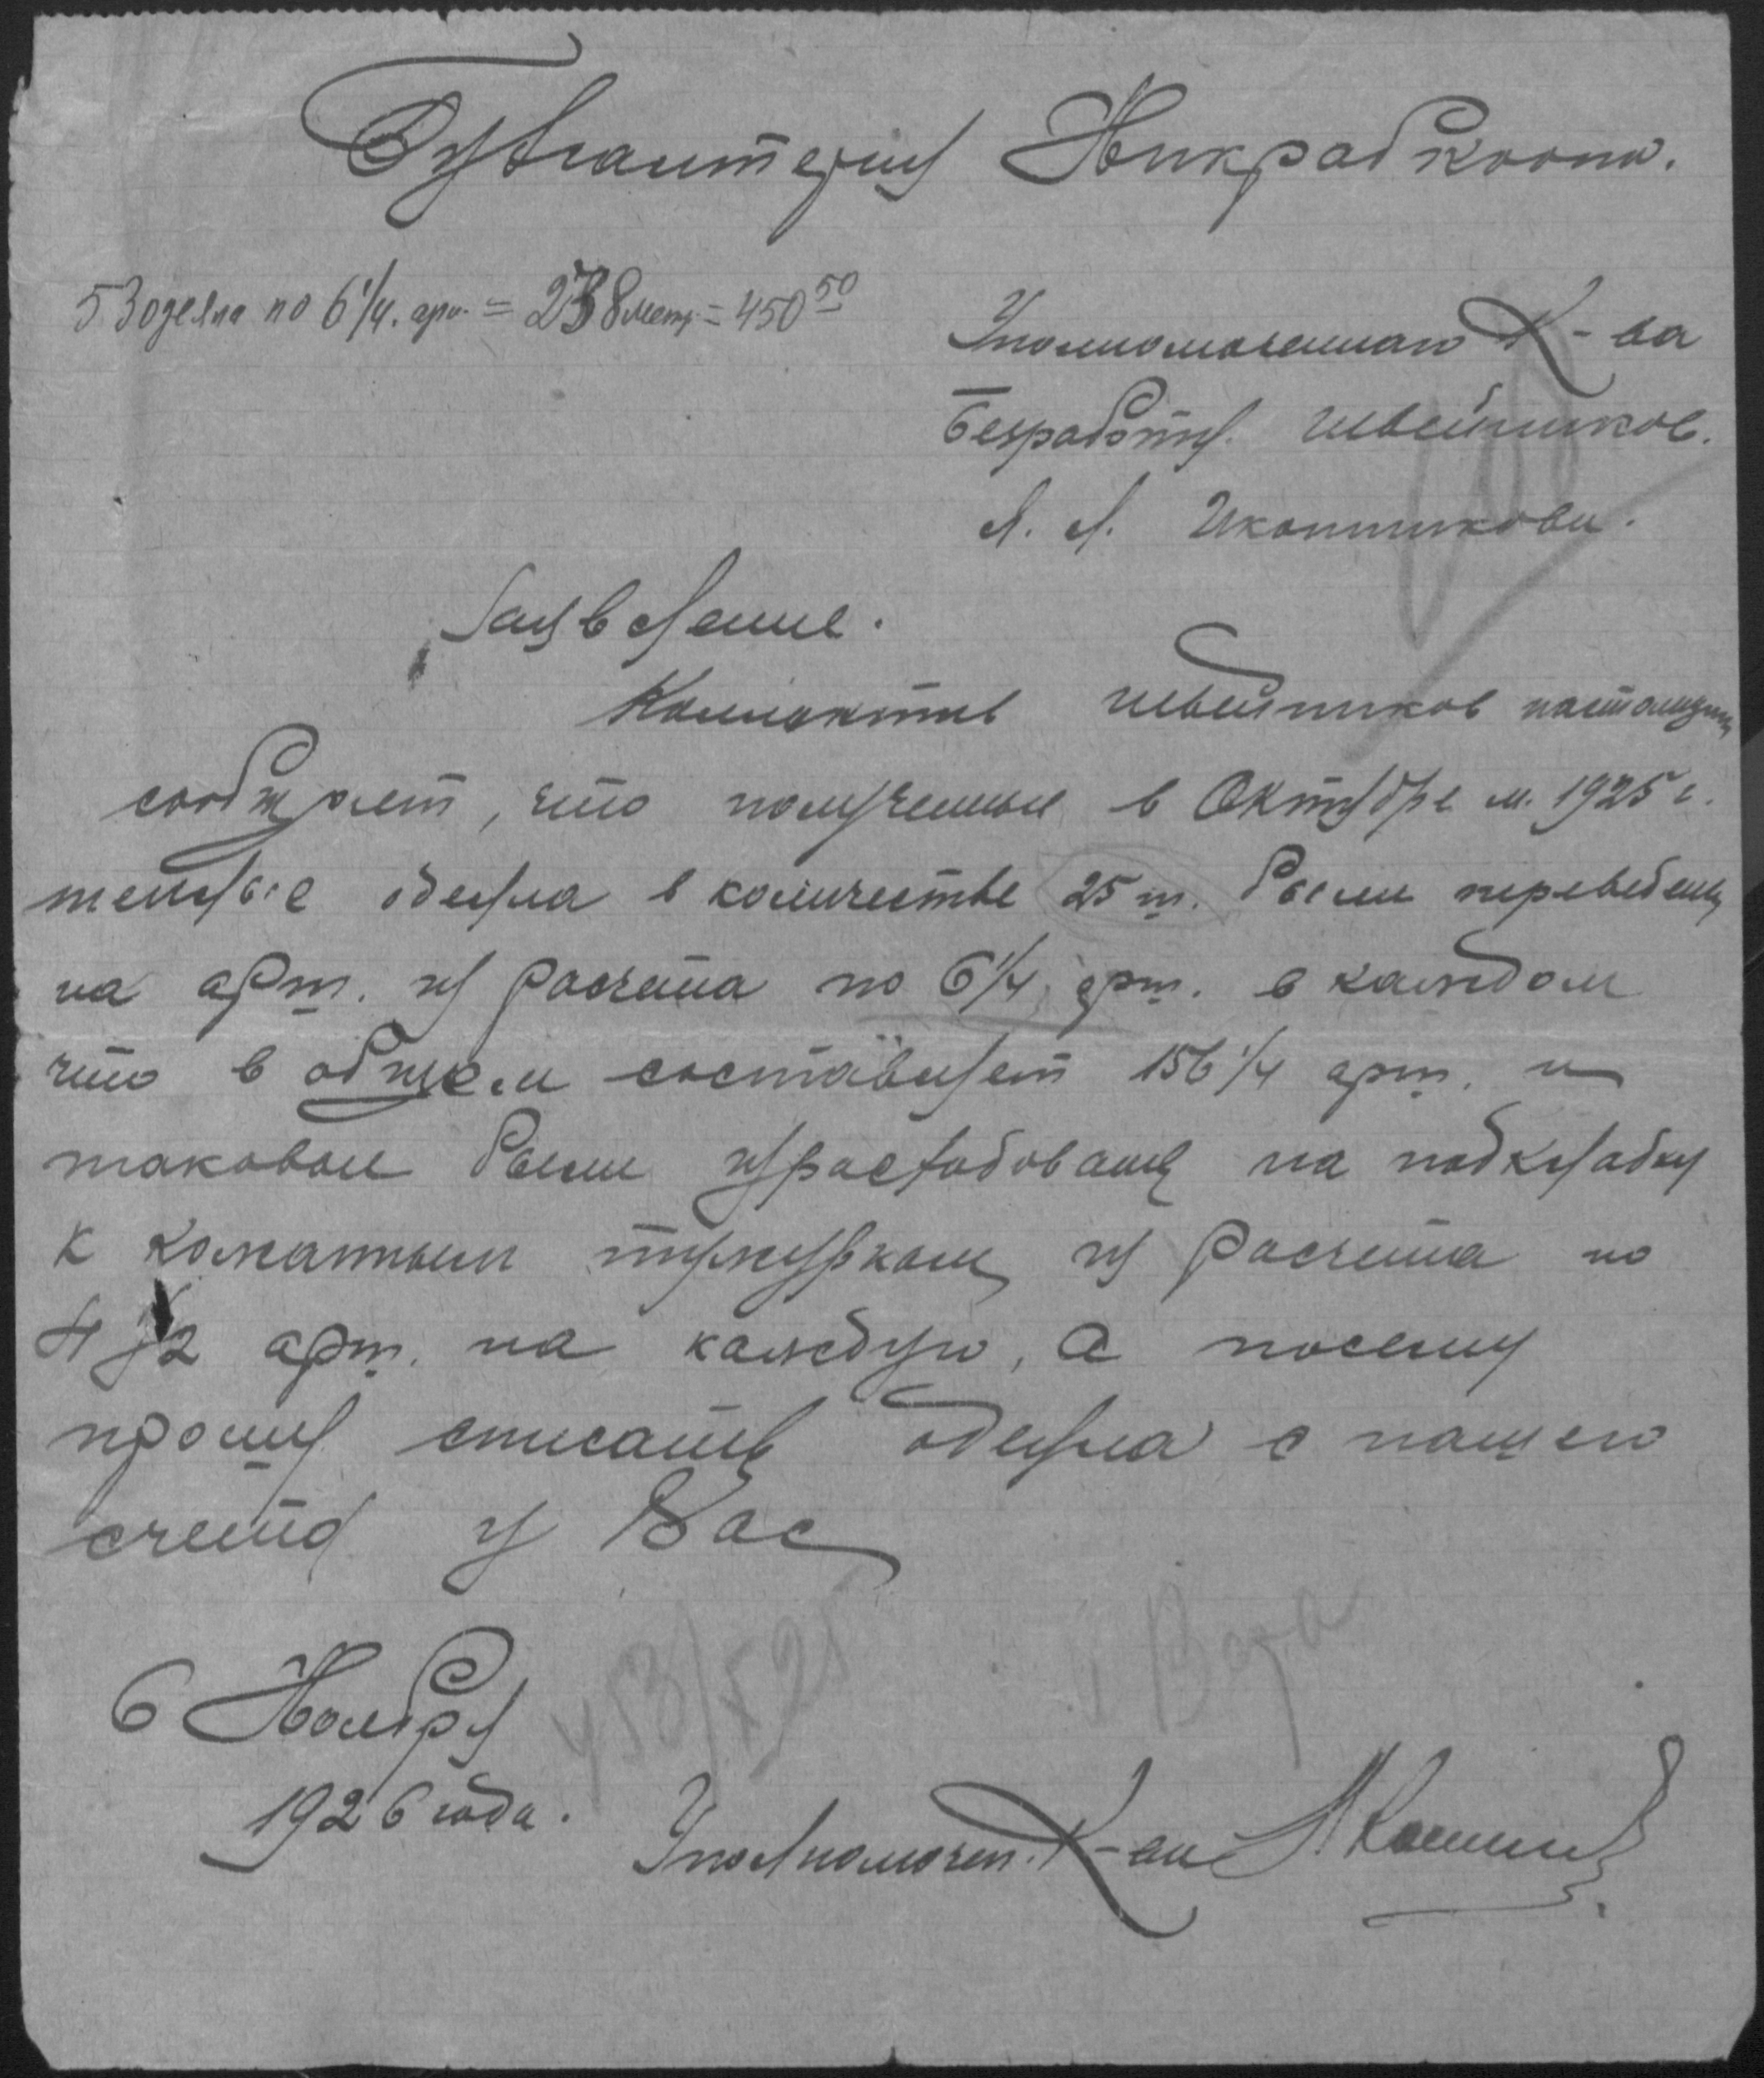 Бухгалтерии Никрабкоопа.
53 одеяла по 6 1/4. арш. = 238 метр. = 450 50
Уполномоченного К-ва
безработн. швейников.
Л. Л. Иконникова.
Заявление.
Коллектив швейников настоящим
сообщает, что полученные в Октябре м. 1925 г.
теплые одеяла в количестве 25 ш. были переведены
на арш. из расчета по 6 1/4 арш. в каждом
что в общем составляет 156 1/4 арш. и
таковые были израсходованы на подкладку
к кожанным тужуркам из расчета по
4 1/2 арш. на каждую, а посему
прошу списать одеяла с нашего
счета у Вас
6 Ноября
1926 года.
Уполномочен. К-ва